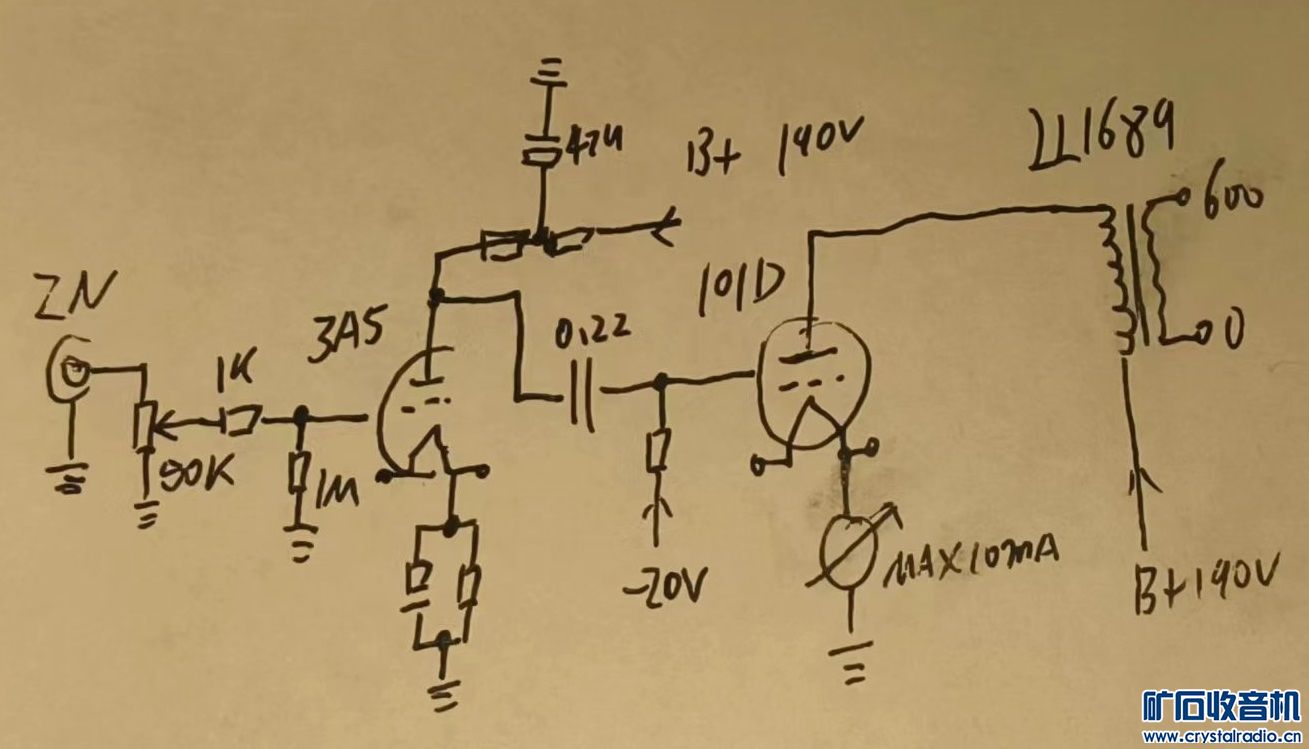 ZN
50K
1K
1M
3A5
47u
B+ 190V
0.22
-20V
101D
MAX10mA
LL1689
600
0
B+190V
矿石收音机
www.crystalradio.cn